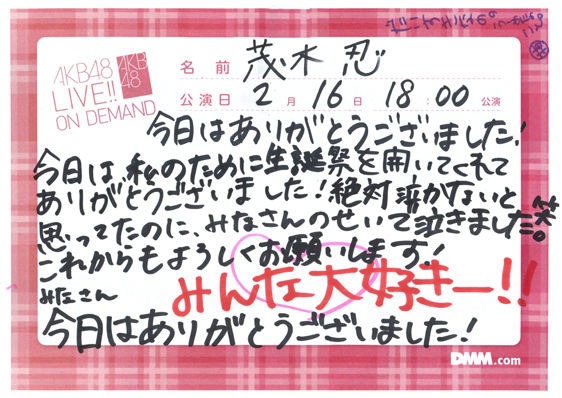 AKB48
LIVE!!
ON DEMAND
AKB
48
名前 茂木 忍
公演日 2月 16日 18:00 公演
今日はありがとうございました!
今日は、私のために生誕祭を開いてくれて
ありがとうございました!絶対泣かないと
思ってたのに、みなさんのせいで泣きました。笑
これからもよろしくお願いします!
みなさん
みんな大好きー!!
今日はありがとうございました!
DMM.com